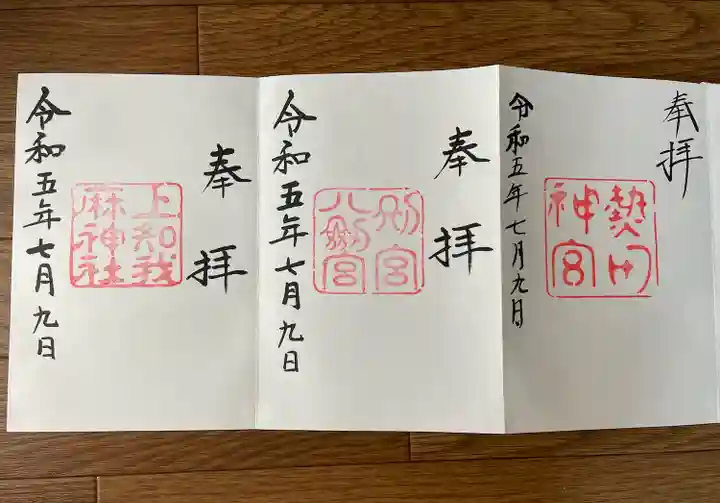 奉拝
熱田
神宮
令和五年七月九日
奉拝
別宮
八劔宮
令和五年七月九日
奉拝
上知我
麻神社
令和五年七月九日